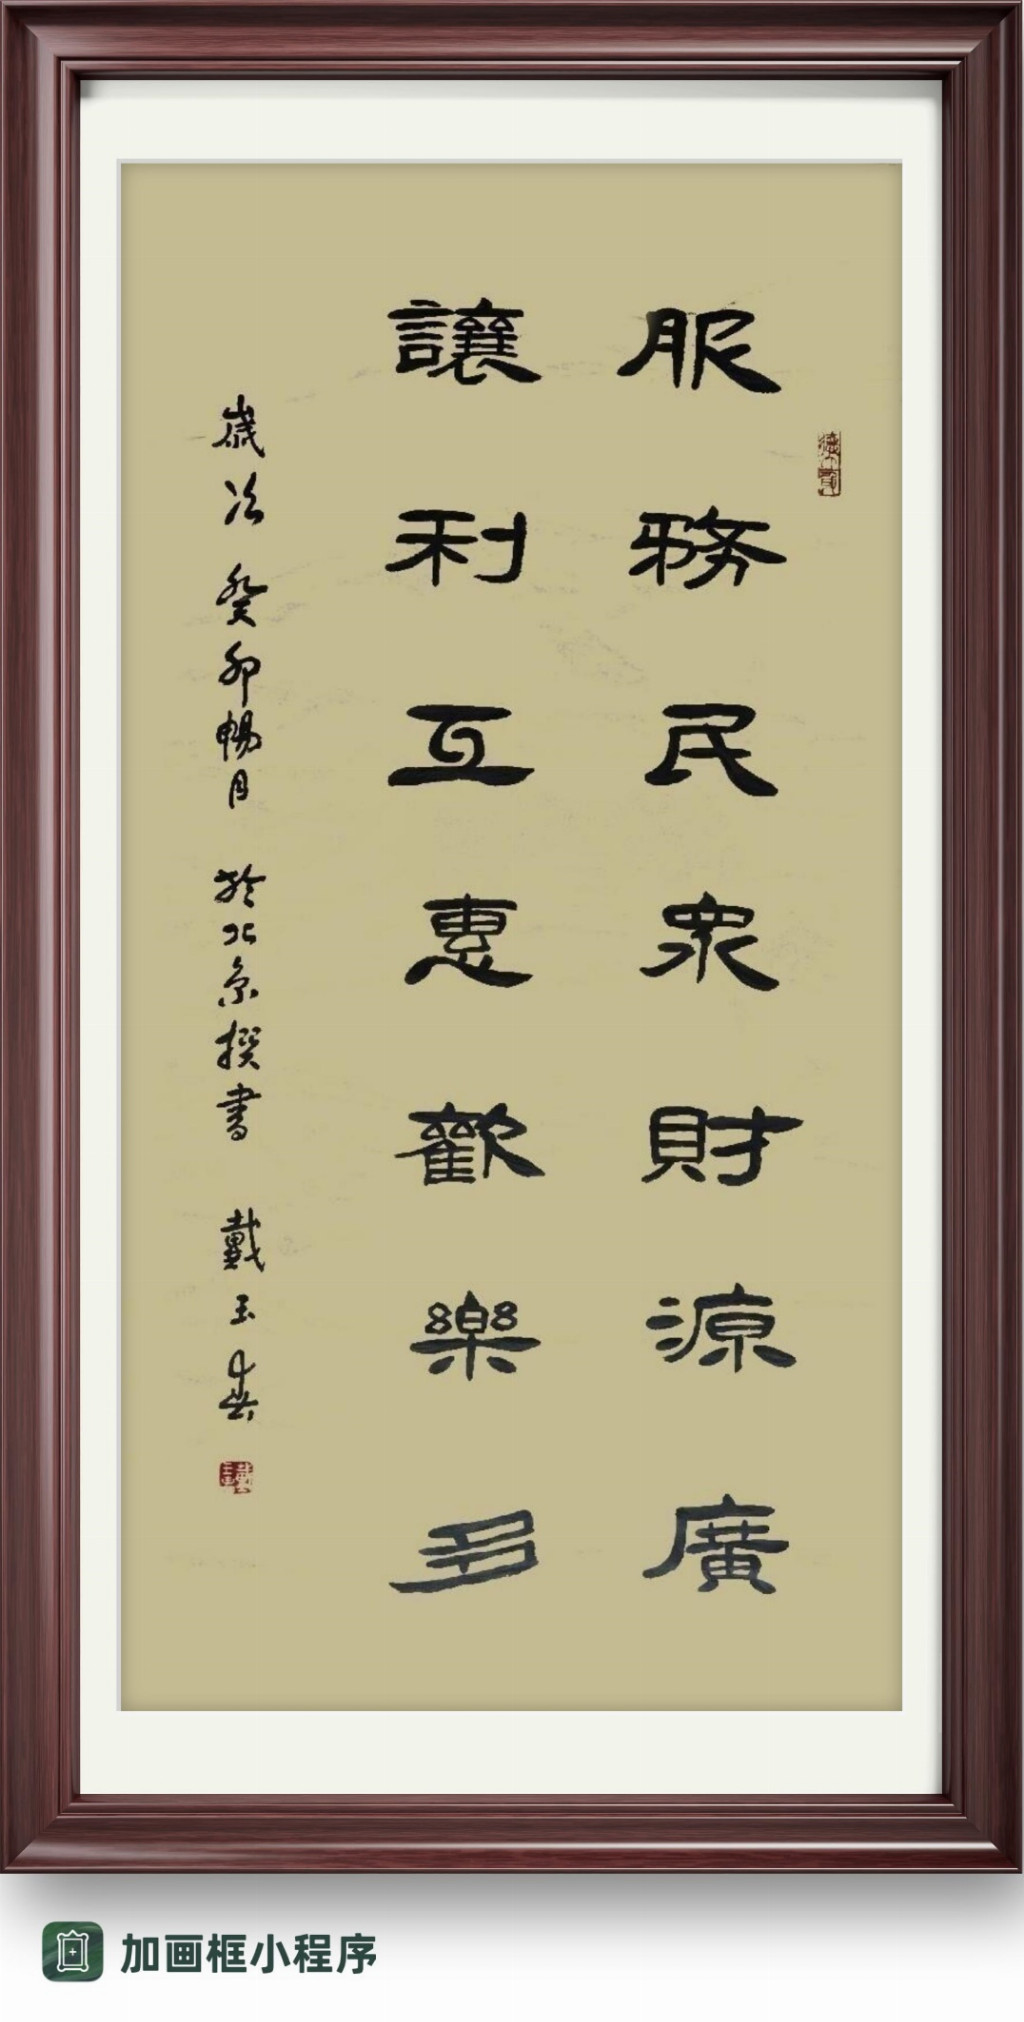 服務民衆財源廣
讓利互惠歡樂多
歲次癸卯暢月於北京撰書戴玉春
加画框小程序